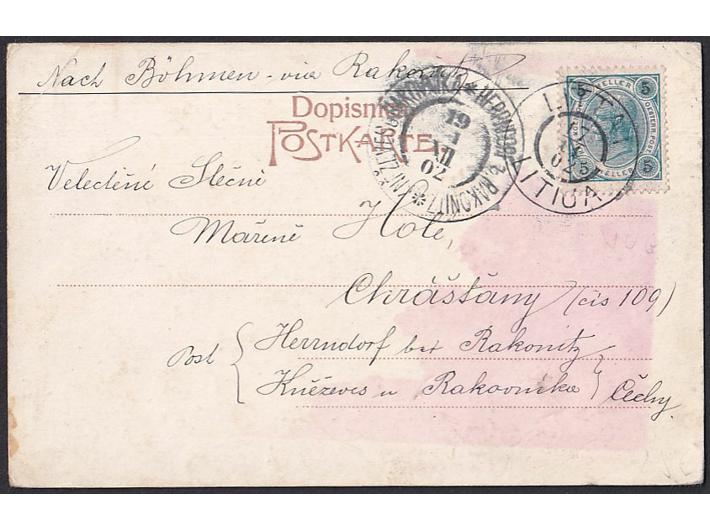 Nach Böhmen - via Rakonitz
Dopisni
POSTKARTE
HERRNDORF B. RAKONITZ
19
VII
02
LITIJA
5
5
HELLER
5
5
HELLER
Velectění Slečně
Mařeně Hole,
Chrášťany (čis 109)
Post { Herrndorf bei Rakonitz
Kněževes u Rakovníka } Čechy